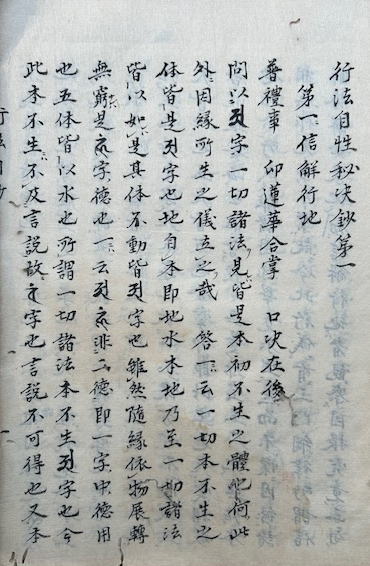 行法自性秘决鈔第一
第一信解行地
普禮事　印蓮華合掌　口决在後
問以𑖀字一切諸法見皆是本初不生之體也何此
外因縁所生之儀立之哉　答一云一切本不生之
体皆是𑖀字也地自本即地水本地乃至一切諸法
皆以如是其体不動皆𑖀字也雖然隨縁依物展轉
無窮是𑖪字德也一云𑖀𑖪非二德即一字中德用
也五体皆以水也所謂一切諸法本不生𑖀字也今
此本不生不及言説故𑖪字也言説不可得也又本